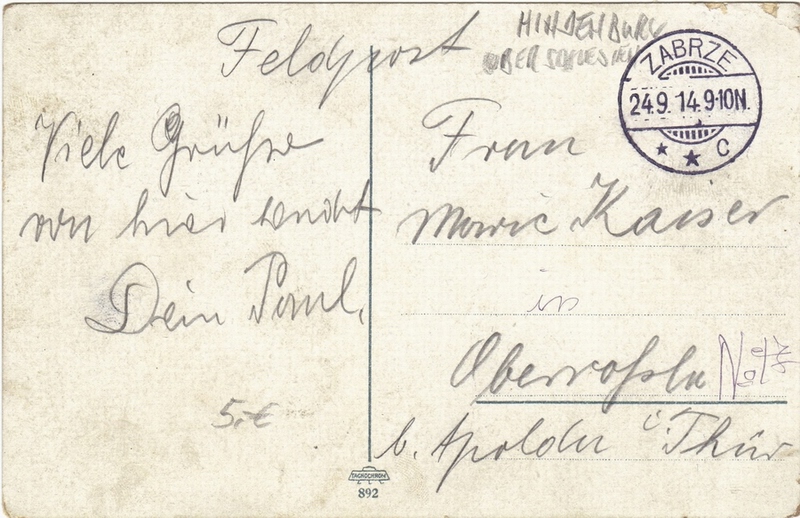 Feldpost
HINDENBURG
OBERSCHLESIEN
ZABRZE
24.9.14.9-10N.
* * C
Viele Grüße
von hier sendet
Dein Paul.
5.-€
Frau
Marie Kaiser
in
Oberroßla
b. Apolda i. Thür
TACHOCHROM
892